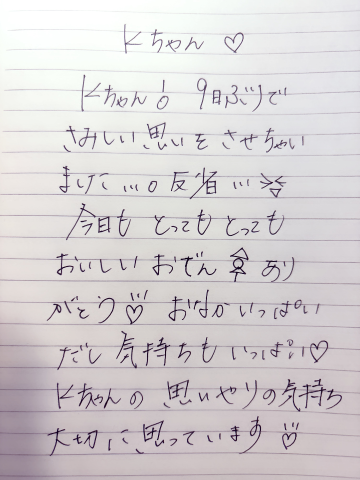 Kちゃん ♡
Kちゃん! 9日ぶりで
さみしい思いをさせちゃい
ました...。反省...
今日も とっても とっても
おいしい おでん あり
がとう♡ おなかいっぱい
だし 気持ちも いっぱい♡
Kちゃんの 思いやりの気持ち
大切に思っています♡